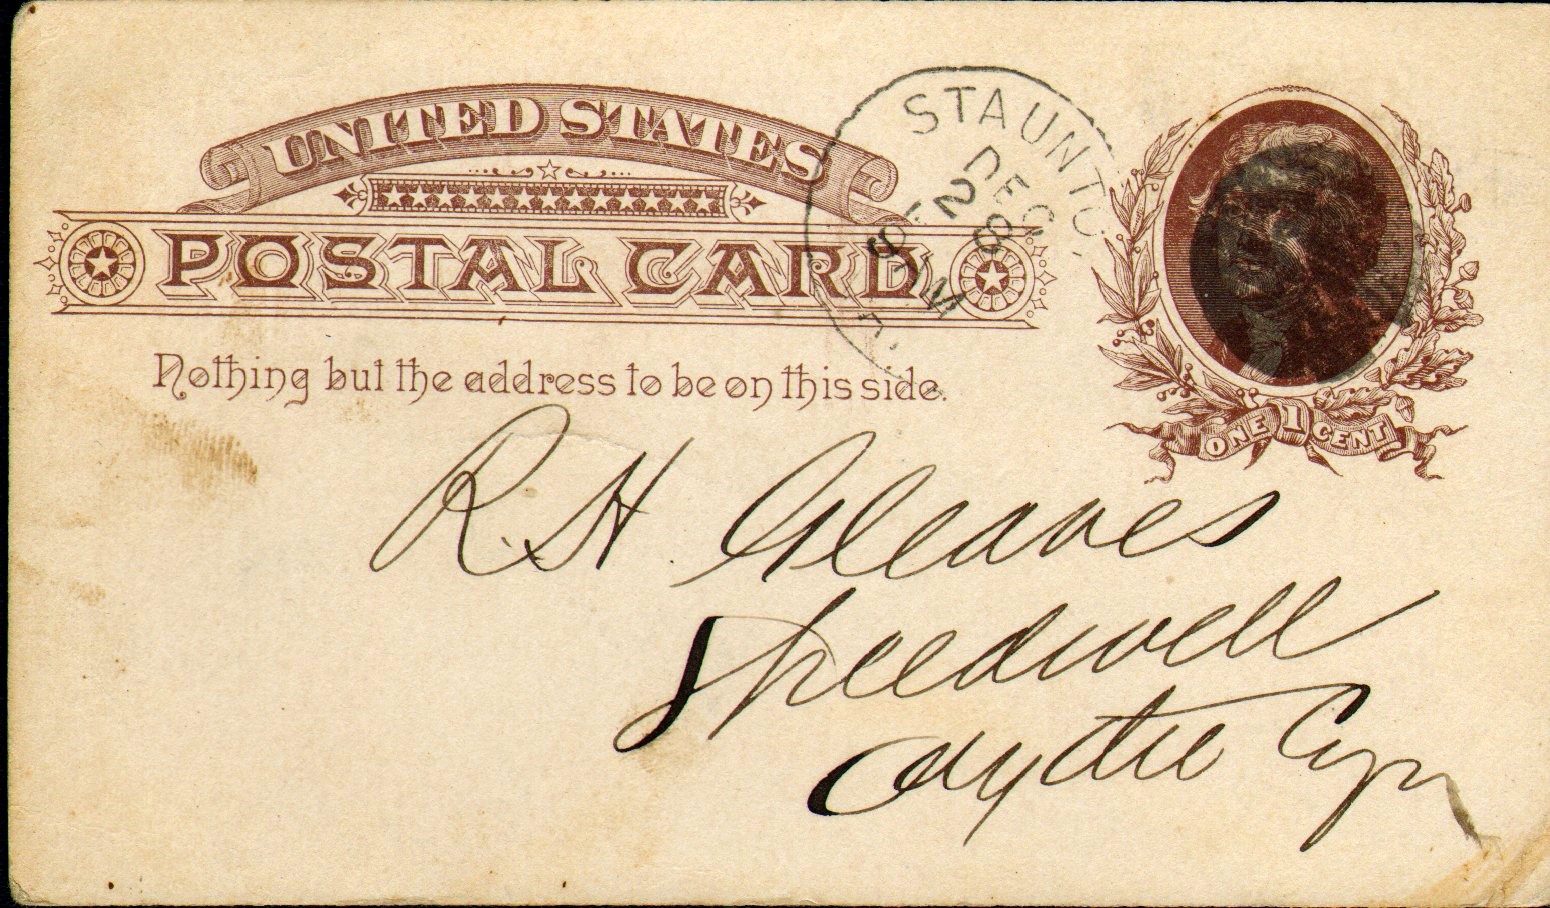 UNITED STATES
POSTAL CARD
Nothing but the address to be on this side.
STAUNTO
DEC
28
ONE 1 CENT
R. H. Gleaves
Speedwell
Wythe Co